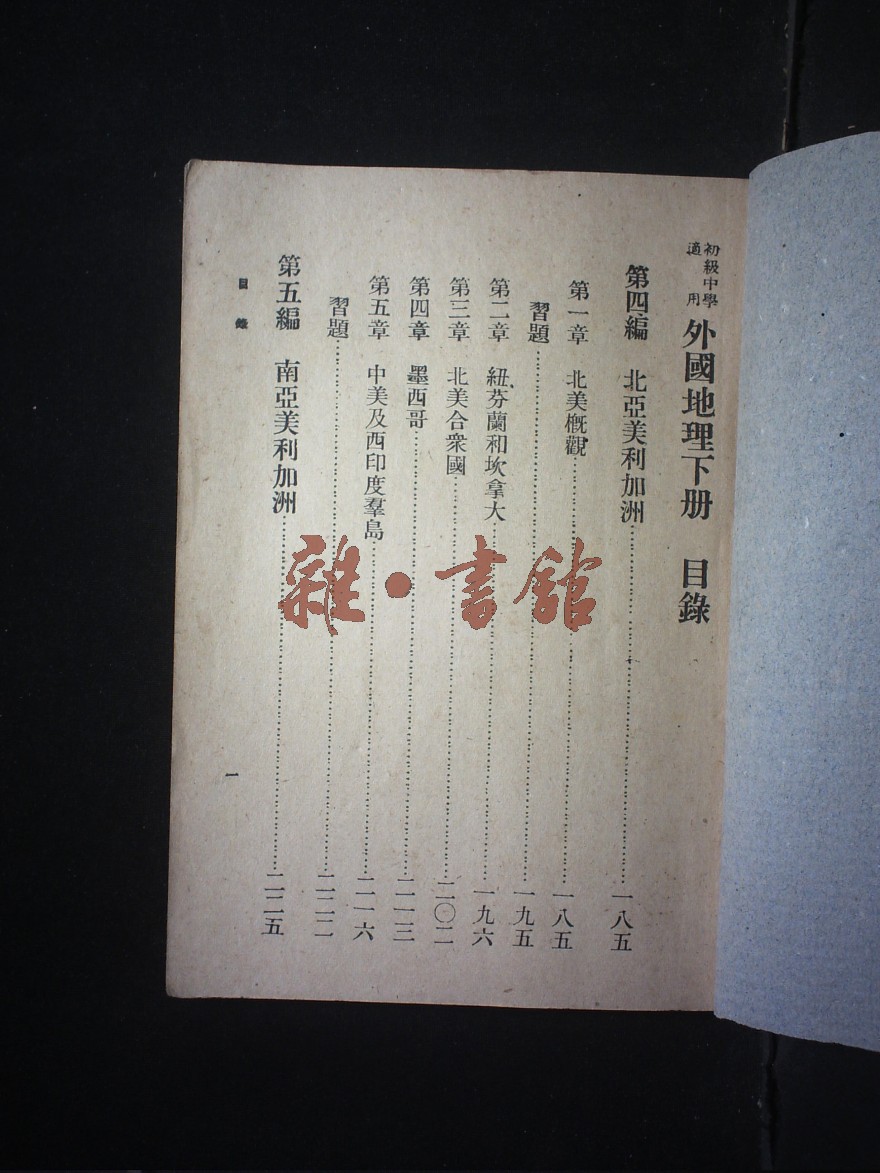 初級中學適用 外國地理下册 目錄
第四編 北亞美利加洲……一八五
第一章 北美概觀……一八五
習題……一九五
第二章 紐芬蘭和坎拿大……一九六
第三章 北美合衆國……二〇二
第四章 墨西哥……二一三
第五章 中美及西印度羣島……二一六
習題……二二二
第五編 南亞美利加洲……二二五
目錄
一
雜·書館